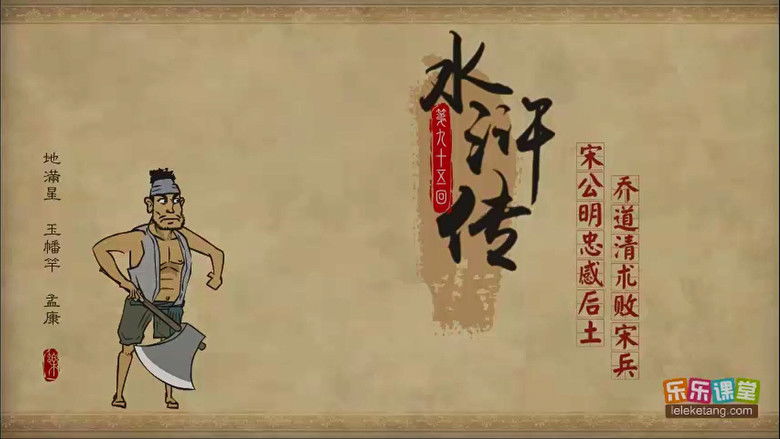 水浒传
第九十五回
乔道清术败宋兵
宋公明忠感后土
地满星 玉幡竿 孟康
乐乐课堂
leleketang.com